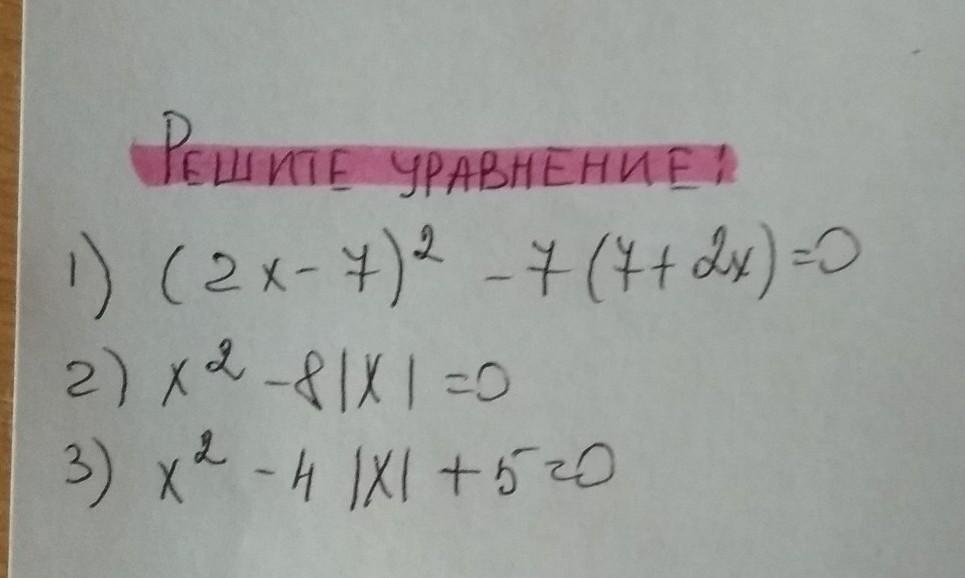 РЕШИТЕ УРАВНЕНИЕ!
1) (2x-7)² -7(7+2x)=0
2) x² -8|x|=0
3) x² -4|x|+5=0